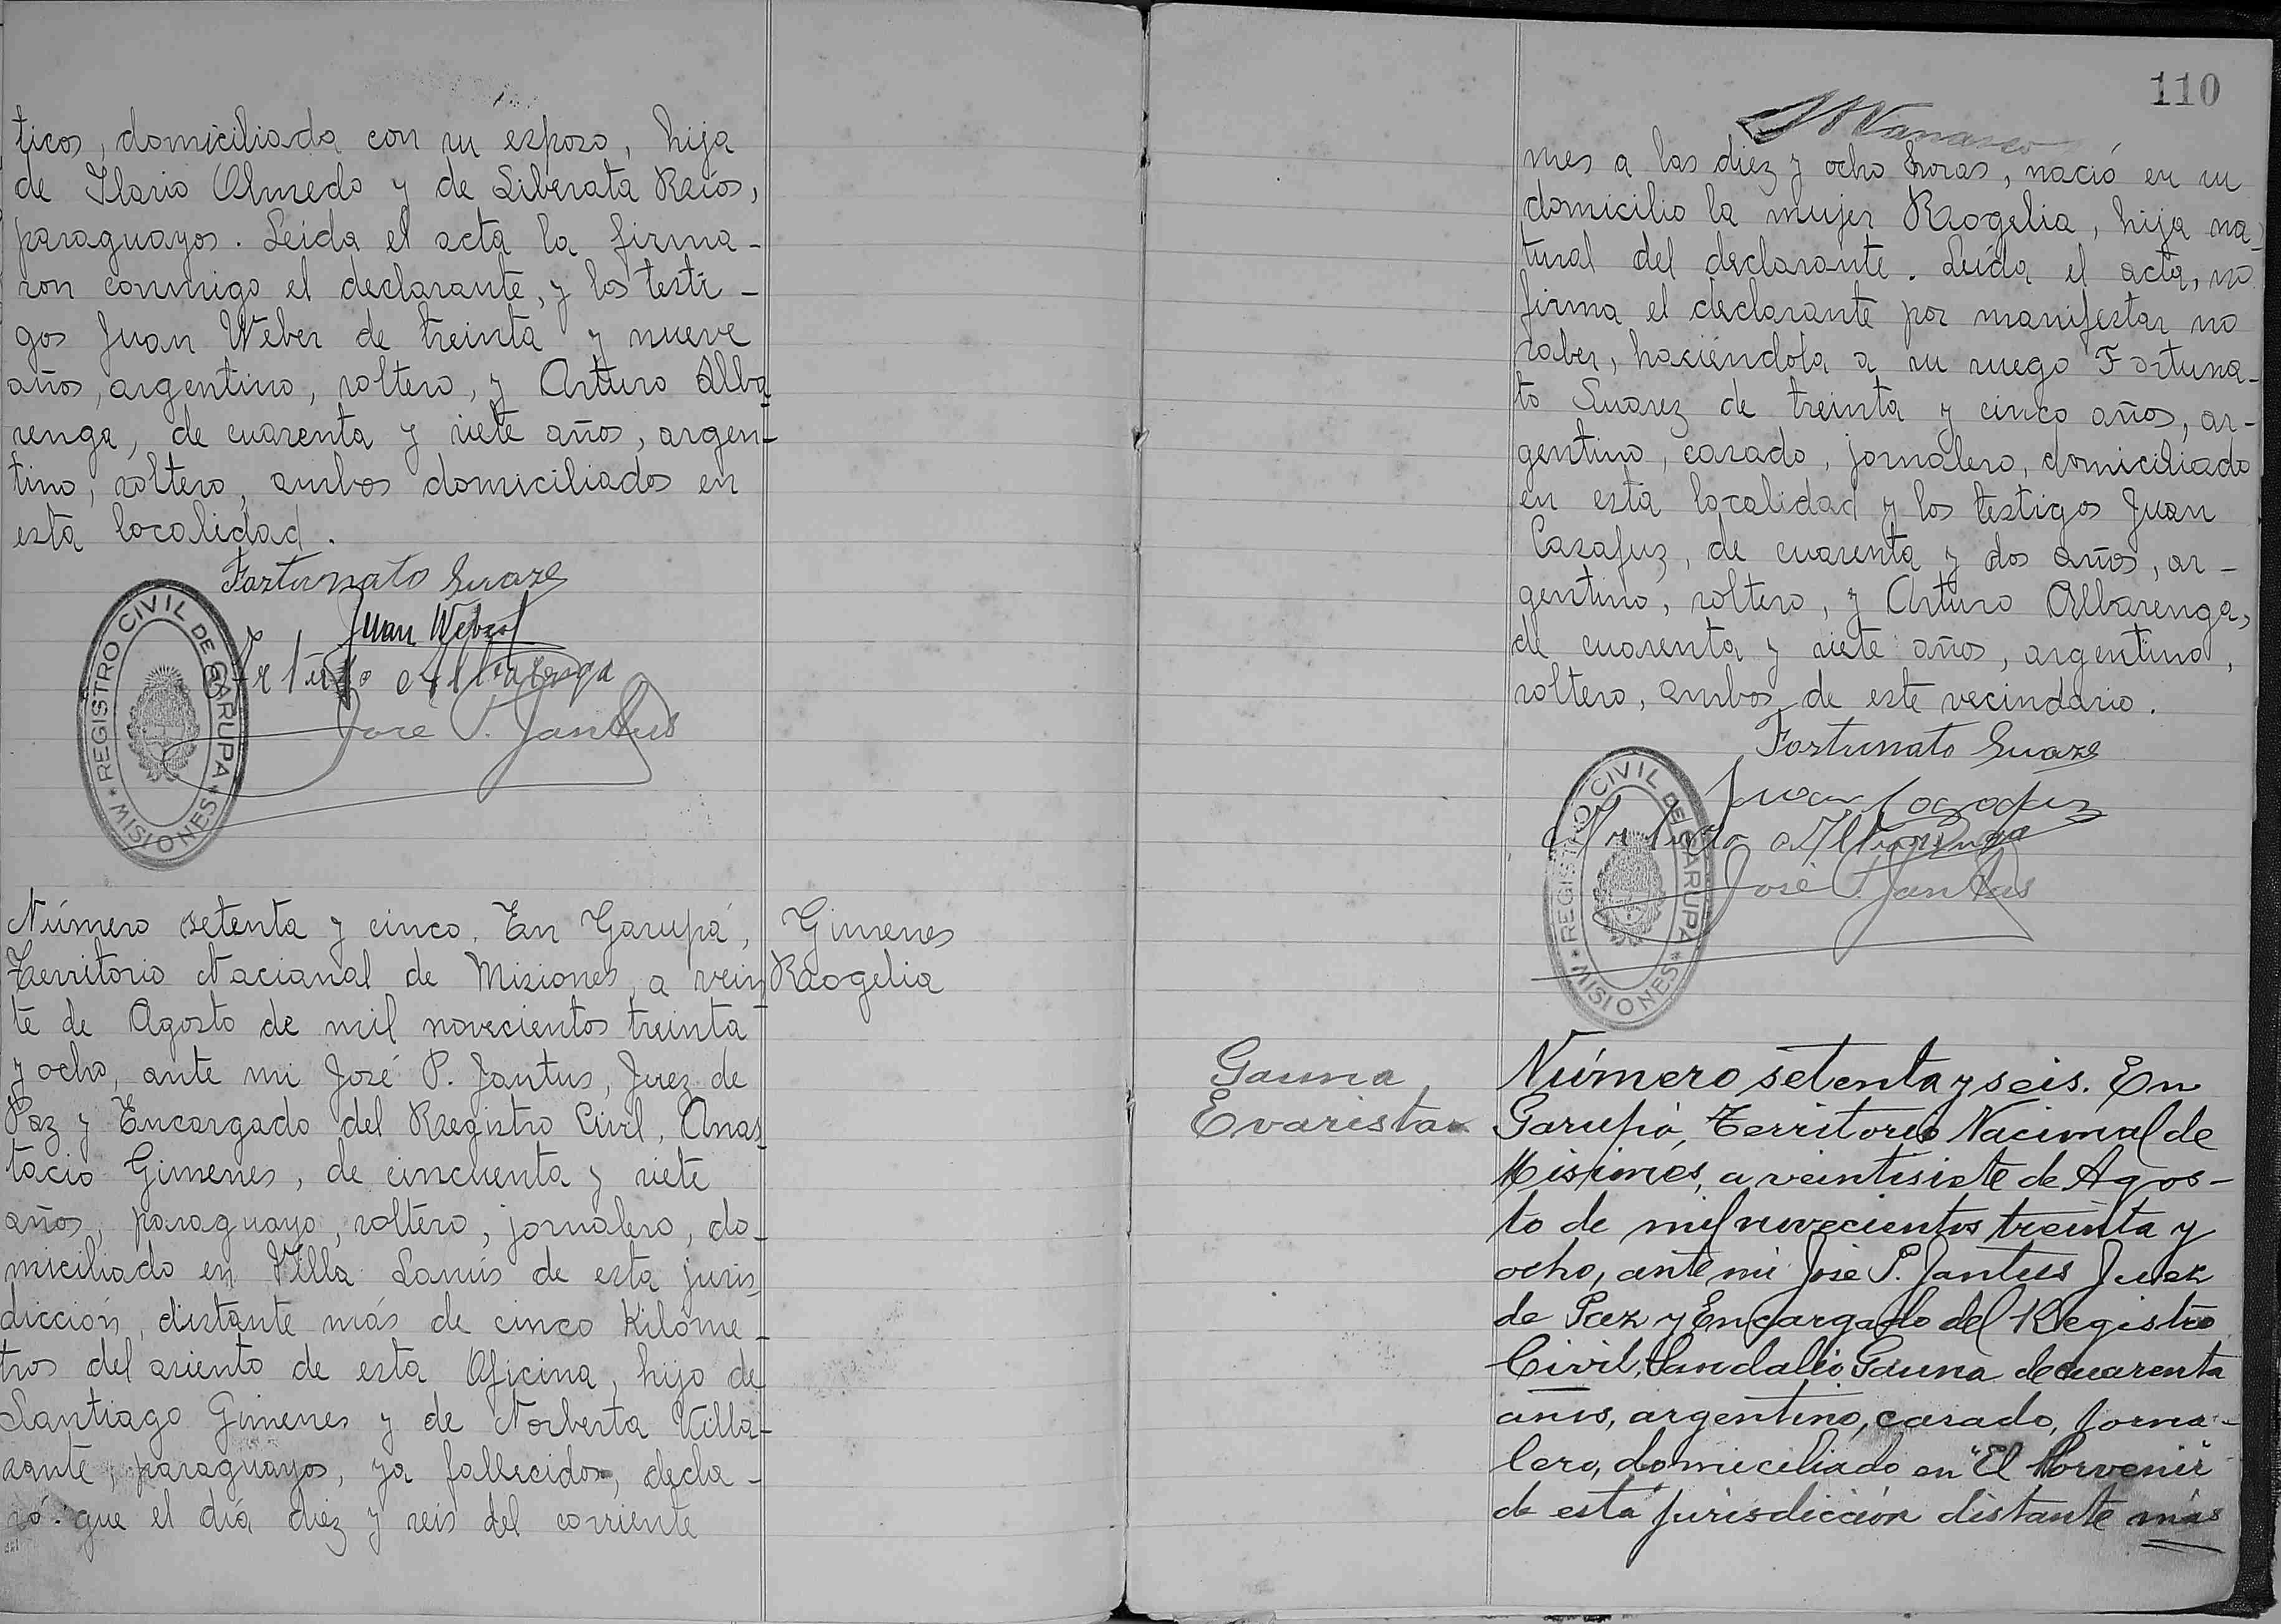 ticos, domiciliada con su esposo, hija
de Ilario Olmedo y de Liberata Rios,
paraguayos. Leida el acta la firma-
ron conmigo el declarante, y los testi-
gos Juan Weber de treinta y nueve
años, argentino, soltero, y Arturo Alba
renga, de cuarenta y siete años, argen-
tino, soltero, ambos domiciliados en
esta localidad.
Fortunato Suarez
Juan Weber
Arturo Albarenga
José P. Jantus
REGISTRO CIVIL DE GARUPA
* MISIONES *
Número setenta y cinco. En Garupá,
Territorio Nacional de Misiones, a vein-
te de Agosto de mil novecientos treinta
y ocho, ante mi José P. Jantus, Juez de
Paz y Encargado del Registro Civil, Anas-
tacio Gimenes, de cincuenta y siete
años, paraguayo, soltero, jornalero, do-
miciliado en Villa Lanús de esta juris-
dicción, distante más de cinco Kilóme-
tros del asiento de esta Oficina, hijo de
Santiago Gimenes y de Norberta Villa-
sante, paraguayos, ya fallecidos, decla-
ró: que el día diez y seis del corriente
Gimenes
Rogelia
110
mes a las diez y ocho horas, nació en su
domicilio la mujer Rogelia, hija na-
tural del declarante. Leída el acta, no
firma el declarante por manifestar no
saber, haciéndola a su ruego Fortuna-
to Suarez de treinta y cinco años, ar-
gentino, casado, jornalero, domiciliado
en esta localidad y los testigos Juan
Casafuz, de cuarenta y dos años, ar-
gentino, soltero, y Arturo Albarenga,
de cuarenta y siete años, argentino,
soltero, ambos de este vecindario.
Fortunato Suarez
Juan Casafuz
Arturo Albarenga
José P. Jantus
REGISTRO CIVIL DE GARUPA
* MISIONES *
Gauna,
Evarista
Número setenta y seis. En
Garupá, Territorio Nacional de
Misiones, a veintisiete de Agos-
to de mil novecientos treinta y
ocho, ante mi José P. Jantus Juez
de Paz y Encargado del Registro
Civil, Sandalio Gauna de cuarenta
años, argentino, casado, jorna-
lero, domiciliado en "El Porvenir"
de esta jurisdicción distante más